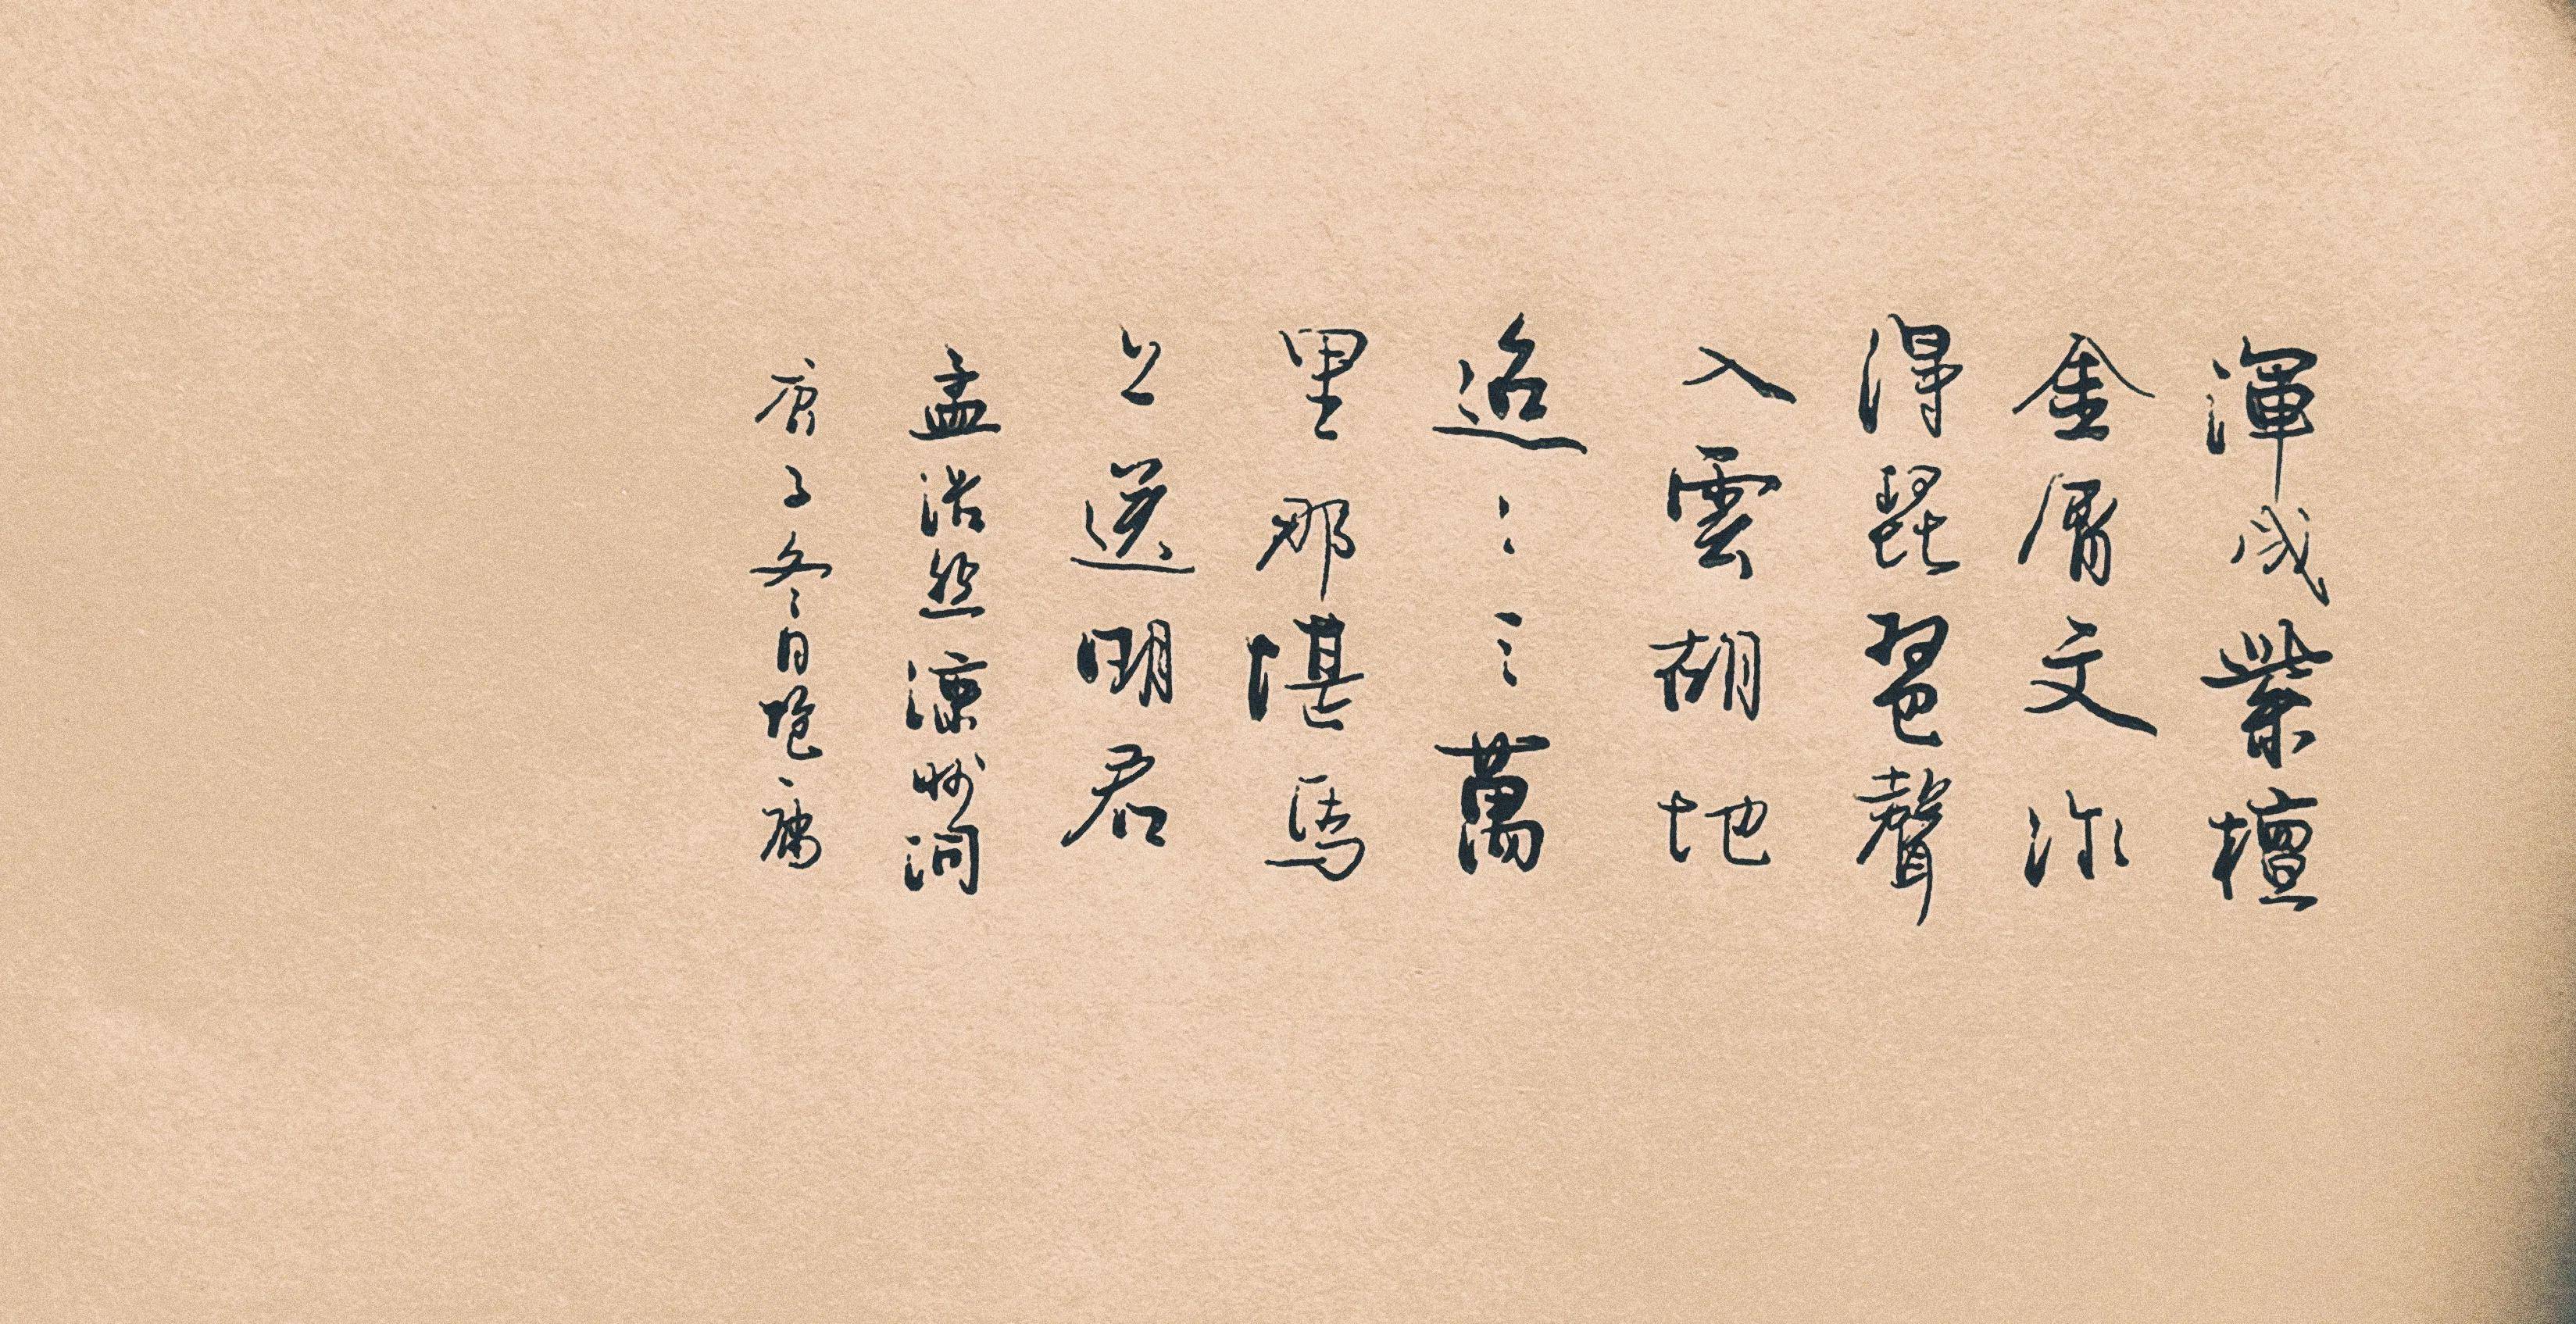 渾成紫檀
金屑文作
得琵琶聲
入雲胡地
迢〻三萬
里那堪馬
上送明君
孟浩然涼州詞
庚子冬日